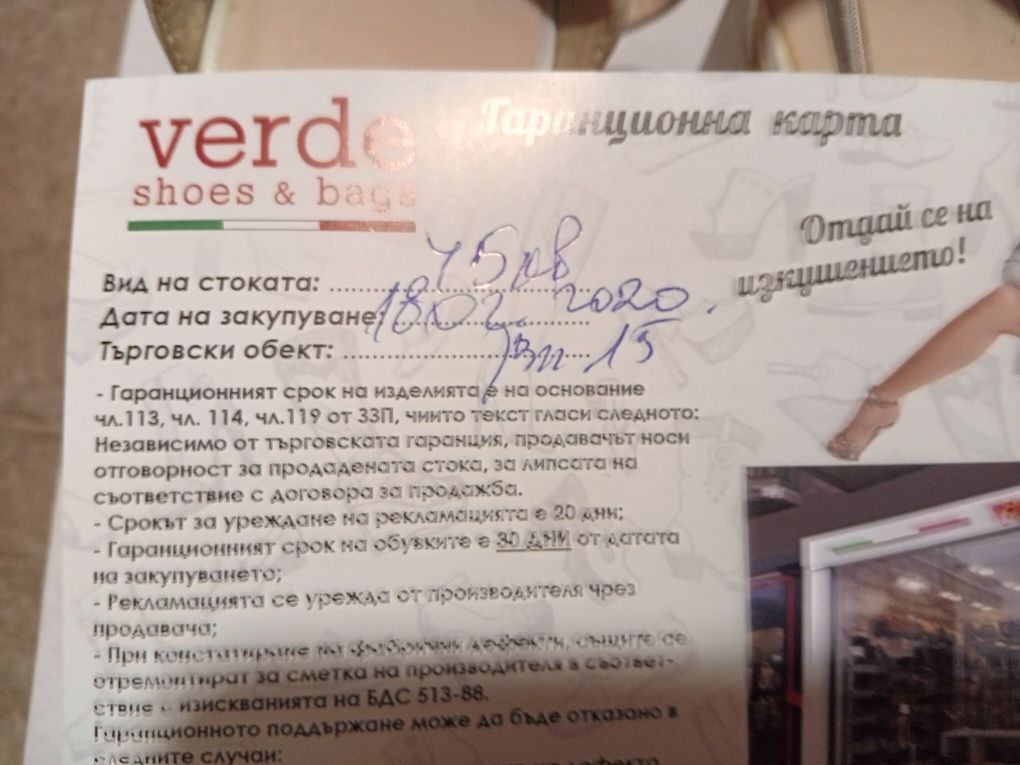 verde
shoes & bags
Гаранционна карта
Отдай се на
изкушението!
Вид на стоката: 45 лв
Дата на закупуване: 18.02. 2020.
Търговски обект: 15
- Гаранционният срок на изделията е на основание
чл.113, чл. 114, чл.119 от ЗЗП, чиито текст гласи следното:
Независимо от търговската гаранция, продавачът носи
отговорност за продадената стока, за липсата на
съответствие с договора за продажба.
- Срокът за уреждане на рекламацията е 20 дни;
- Гаранционният срок на обувките е 30 ДНИ от датата
на закупуването;
- Рекламацията се урежда от производителя чрез
продавача;
- При констатиране на фабрични дефекти, същите се
отремонтират за сметка на производителя в съответ-
ствие с изискванията на БДС 513-88.
Гаранционното поддържане може да бъде отказано в
следните случаи: